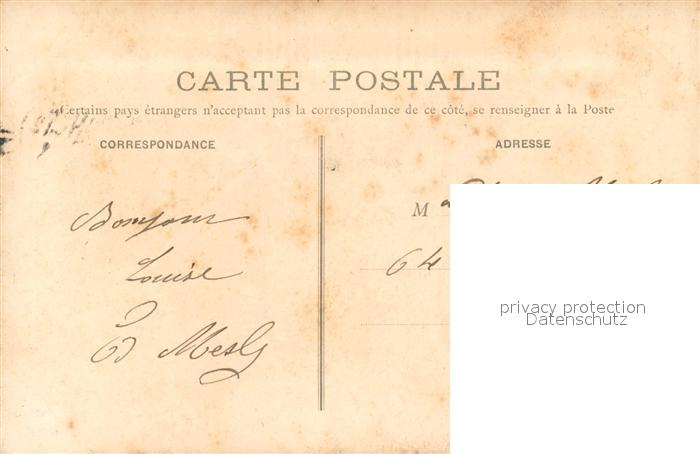 CARTE POSTALE
Certains pays étrangers n'acceptant pas la correspondance de ce côté, se renseigner à la Poste
CORRESPONDANCE
ADRESSE
Bonjour
Louise
Ed Mesly
M
64
privacy protection
Datenschutz